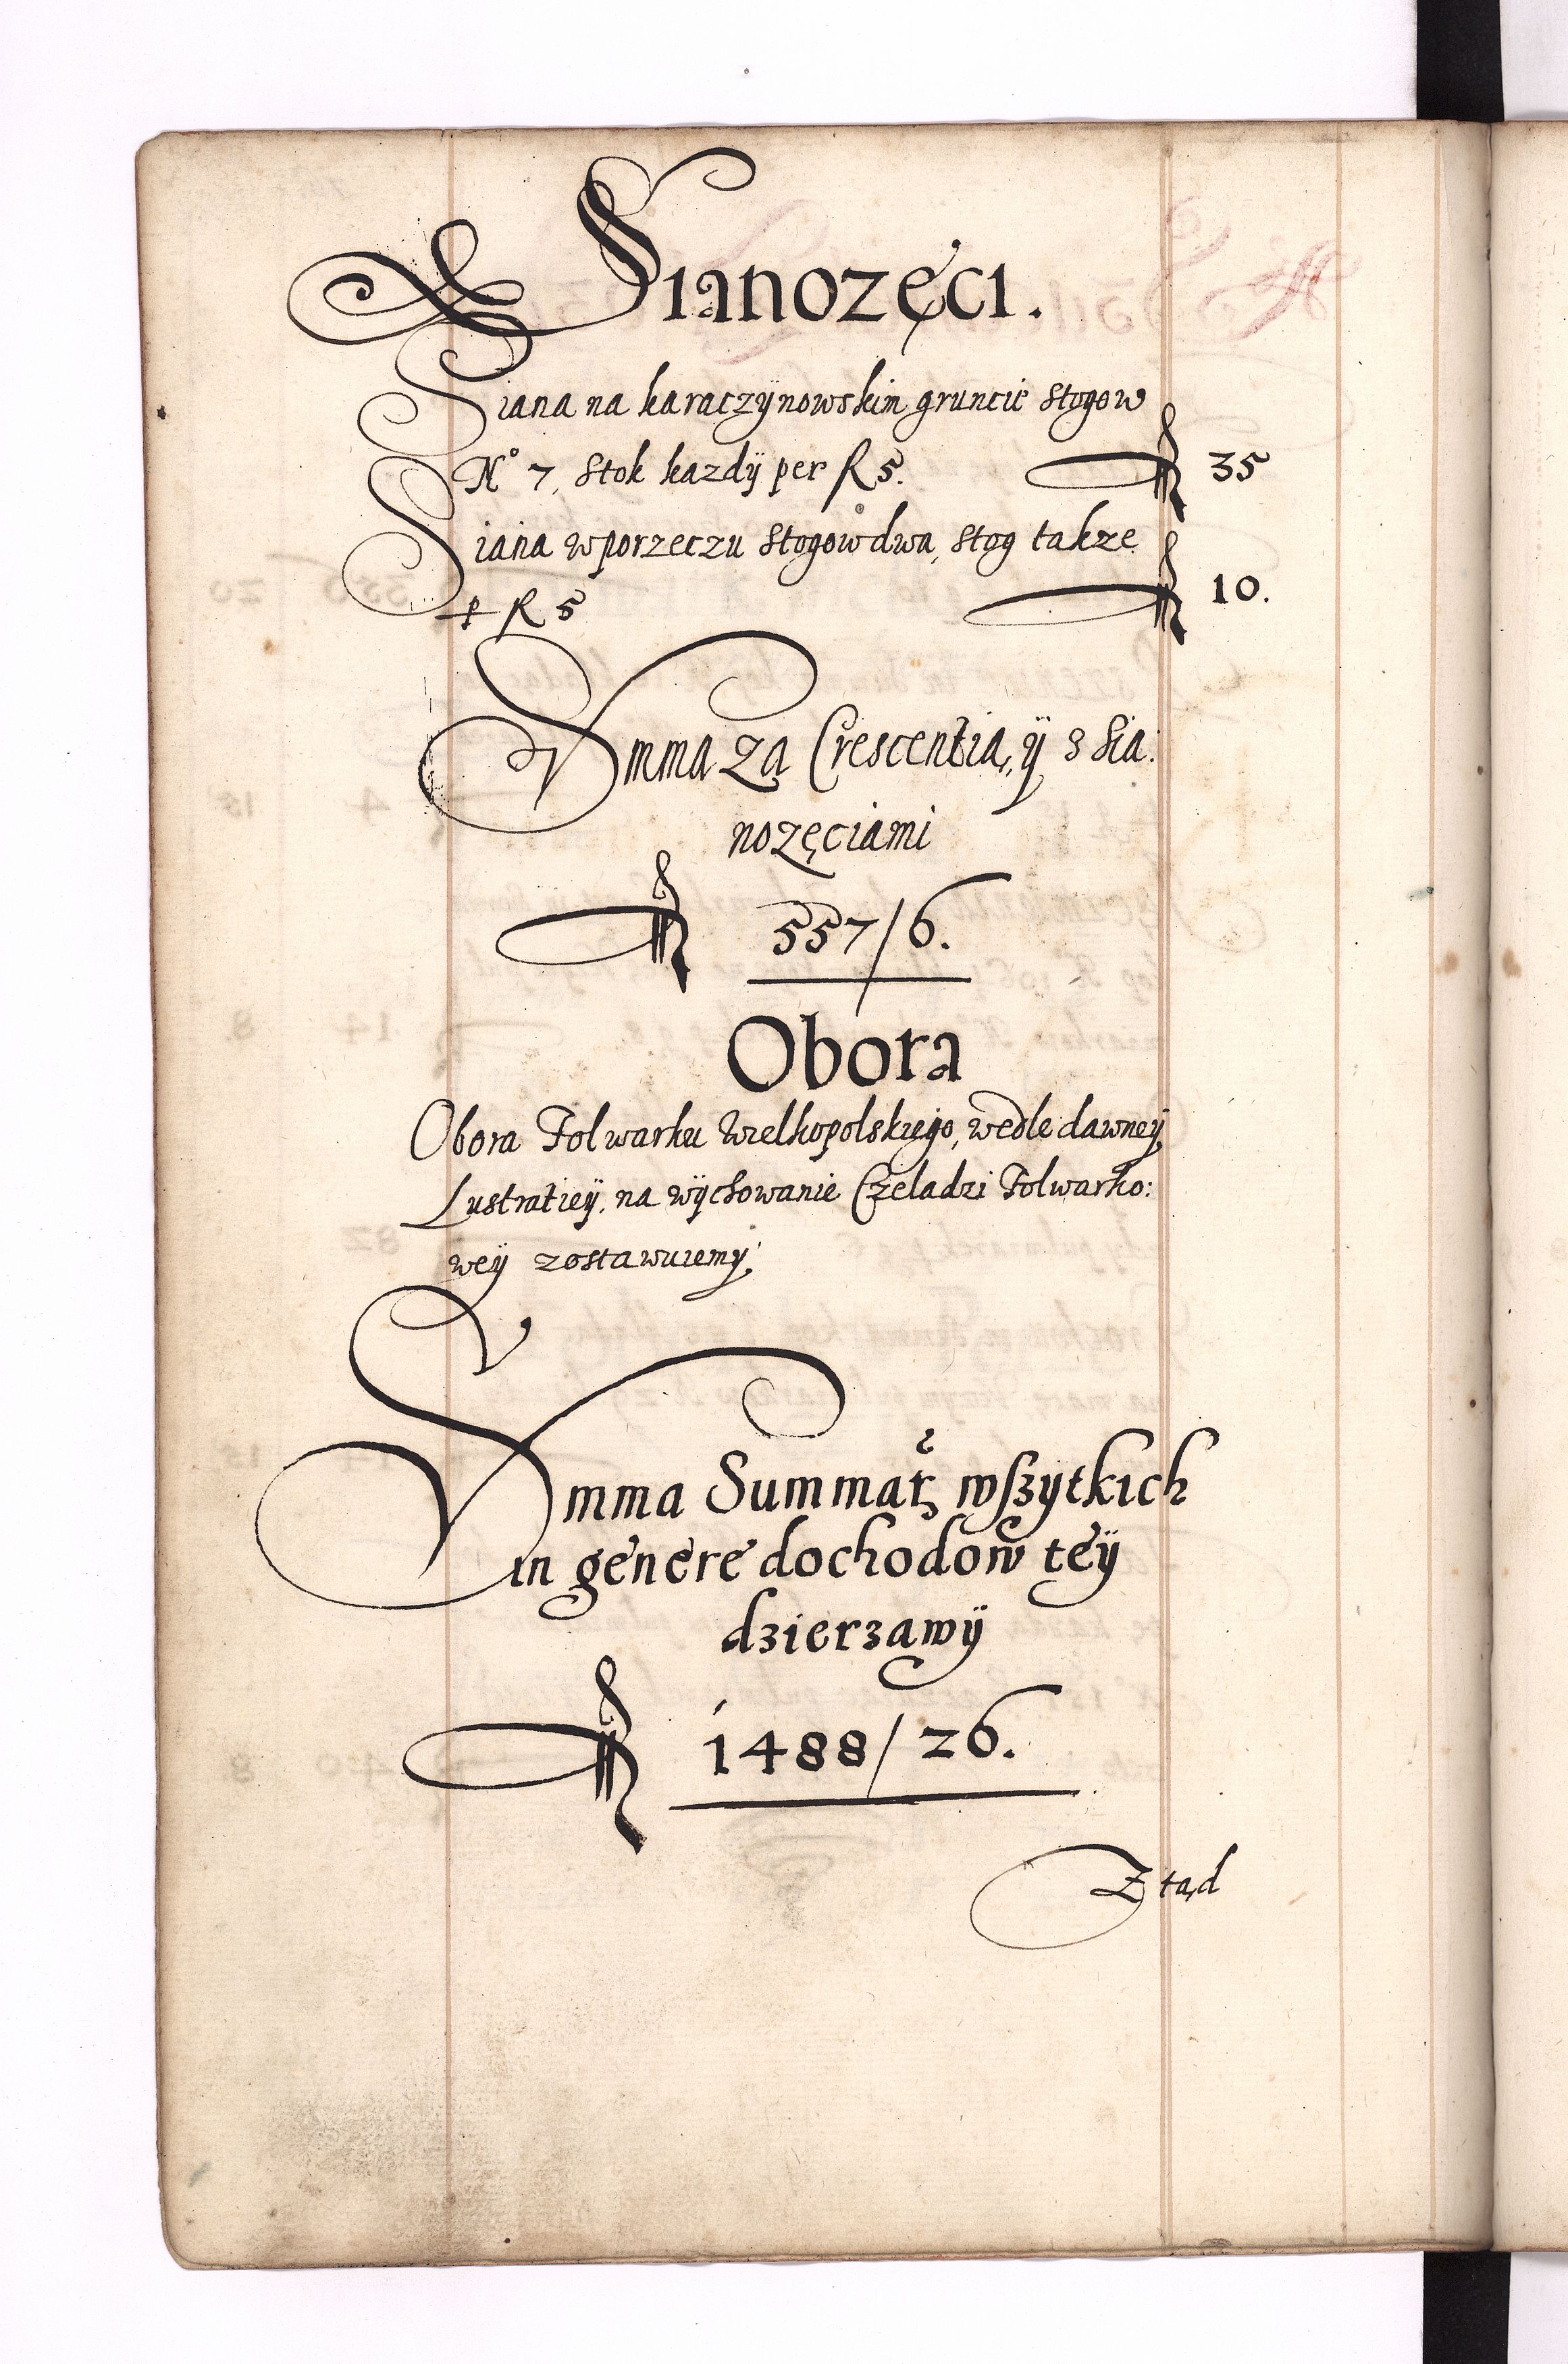 Sianozęci.
Siana na karaczÿnowskim gruncie stogow
No 7, stok kazdÿ per R 5. 35
Siana w porzeczu stogow dwa, stog takze
p R 5 10.
Summa za Crescentią, ÿ z sia:
nozęciami
557/6.
Obora
Obora Folwarku Wielkopolskiego, wedle dawney
Lustratieÿ, na wÿchowanie Czeladzi Folwarko:
weÿ zostawuiemy.
Summa Summar wszytkich
in genere dochodow teÿ
dzierzawÿ
1488/26.
Ztąd